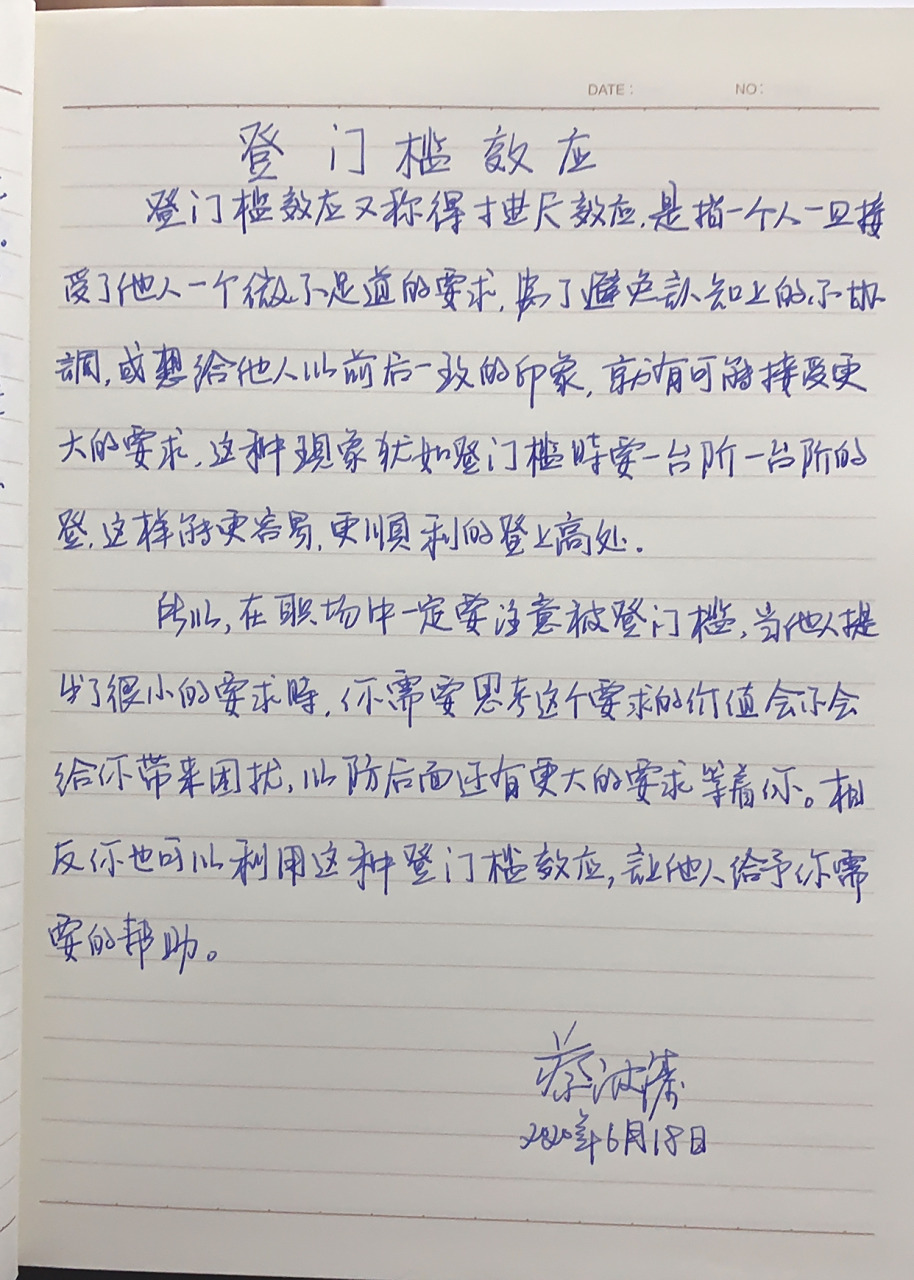 DATE: NO:
登门槛效应
登门槛效应又称得寸进尺效应,是指一个人一旦接
受了他人一个微不足道的要求,为了避免認知上的不协
調,或想给他人以前后一致的印象,就有可能接受更
大的要求,这种现象犹如登门槛時要一台阶一台阶的
登,这样能更容易,更順利的登上高处.
所以,在职场中一定要注意被登门槛,当他人提
出了很小的要求時,你需要思考这个要求的价值会不会
给你带来困扰,以防后面还有更大的要求等着你。相
反你也可以利用这种登门槛效应,讓他人给予你需
要的帮助。
蔡
2020年6月18日